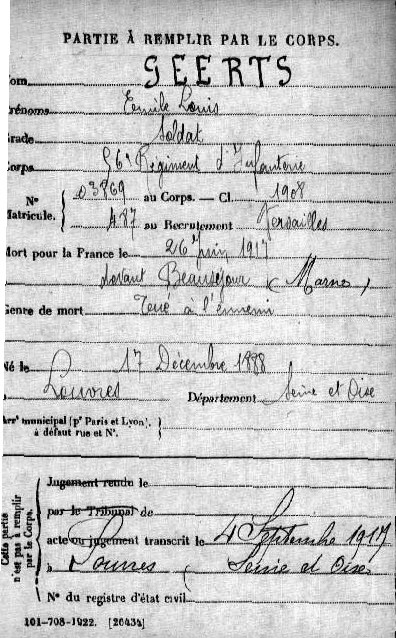 PARTIE À REMPLIR PAR LE CORPS.
Nom GEERTS
Prénoms Emile Louis
Grade Soldat
Corps 56e Régiment d'Infanterie
N° 03869 au Corps. — Cl. 1908
Matricule. 487 au Recrutement Versailles
Mort pour la France le 26 Juin 1917
devant Beauséjour (Marne)
Genre de mort Tué à l'ennemi
Né le 17 Décembre 1888
à Louvres Département Seine et Oise
Arrt municipal (pr Paris et Lyon),
à défaut rue et N°.
Cette partie n'est pas à remplir par le Corps.
Jugement rendu le
par le Tribunal de
acte ou jugement transcrit le 4 Septembre 1917
à Louvres (Seine et Oise)
N° du registre d'état civil
101-708-1922. [26434]